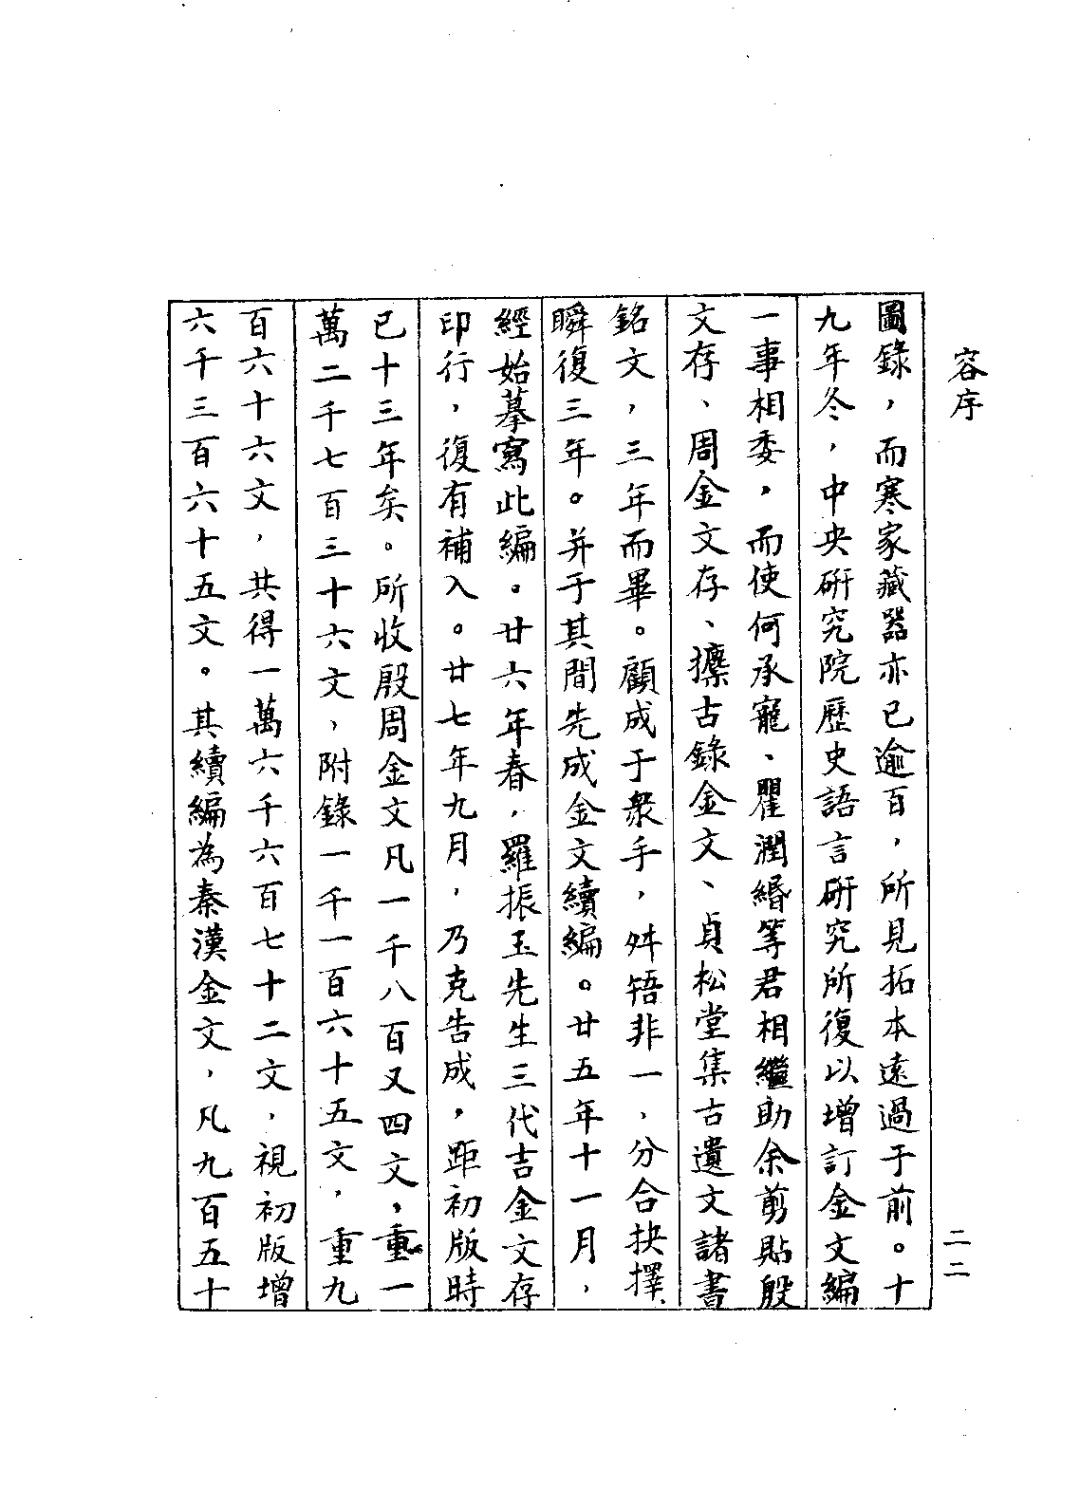 容序
二二
圖錄，而寒家藏器亦已逾百，所見拓本遠過于前。十
九年冬，中央研究院歷史語言研究所復以增訂金文編
一事相委，而使何承寵、瞿潤緡等君相繼助余剪貼殷
文存、周金文存、攈古錄金文、貞松堂集古遺文諸書
銘文，三年而畢。顧成于衆手，舛牾非一，分合抉擇，
瞬復三年。并于其間先成金文續編。廿五年十一月，
經始摹寫此編。廿六年春，羅振玉先生三代吉金文存
印行，復有補入。廿七年九月，乃克告成，距初版時
已十三年矣。所收殷周金文凡一千八百又四文，重一
萬二千七百三十六文，附錄一千一百六十五文，重九
百六十六文，共得一萬六千六百七十二文，視初版增
六千三百六十五文。其續編為秦漢金文，凡九百五十